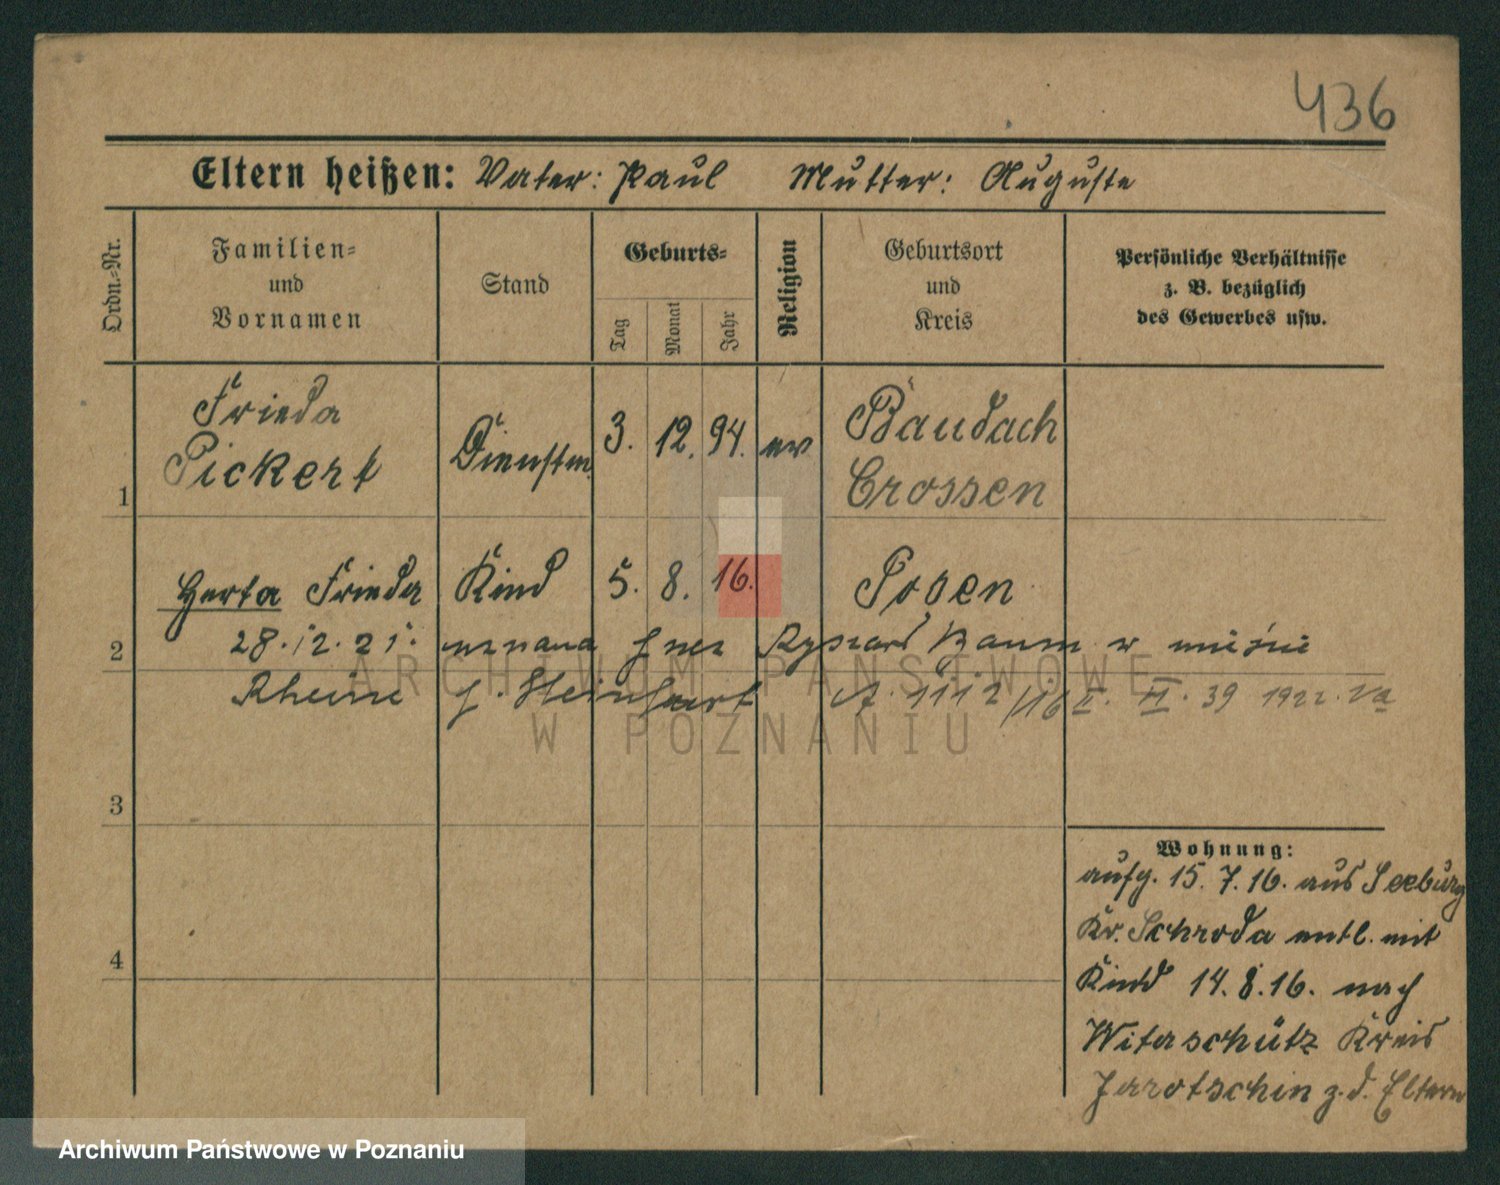 436
Eltern heißen: Vater: Paul Mutter: Auguste
Ordn.=Nr.
Familien=
und
Vornamen
Stand
Geburts=
Tag
Monat
Jahr
Religion
Geburtsort
und
Kreis
Persönliche Verhältnisse
z. B. bezüglich
des Gewerbes usw.
1
Frieda
Pickert
Dienstm.
3. 12. 94. ev
Baudach
Crossen
2
Herta Frieda Kind 5. 8. 16. Posen
28.12.21. uznana przez Ryszard Baum w mieście
Rheine
A. 1112/16 II. VI. 39 1922.
3
4
Wohnung:
aufg. 15.7.16. aus Seeburg
Kr. Schroda entl. mit
Kind 14.8.16. nach
Witaschütz Kreis
Jarotschin z.d. Eltern
ARCHIWUM PAŃSTWOWE
W POZNANIU
Archiwum Państwowe w Poznaniu